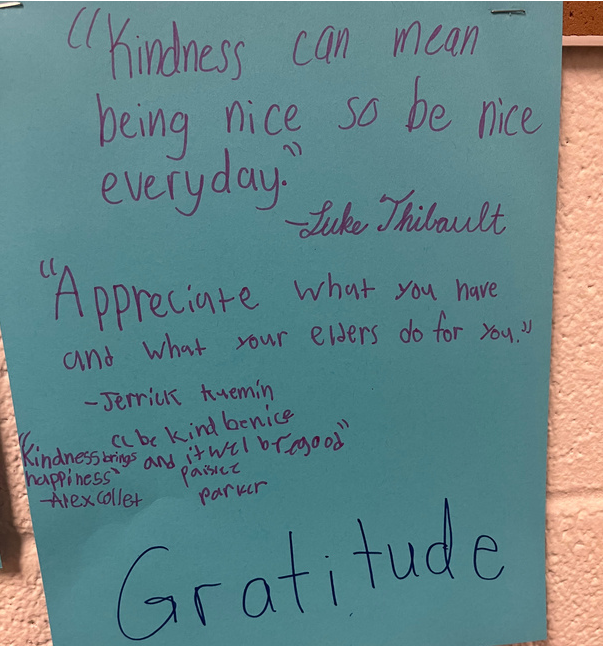 "Kindness can mean
being nice so be nice
everyday."
-Luke Thibault
"Appreciate what you have
and what your elders do for you."
-Jerrick Kuemin
"be kind be nice
and it will be good"
paislee
parker
"Kindness brings
happiness"
-Alex Collet
Gratitude